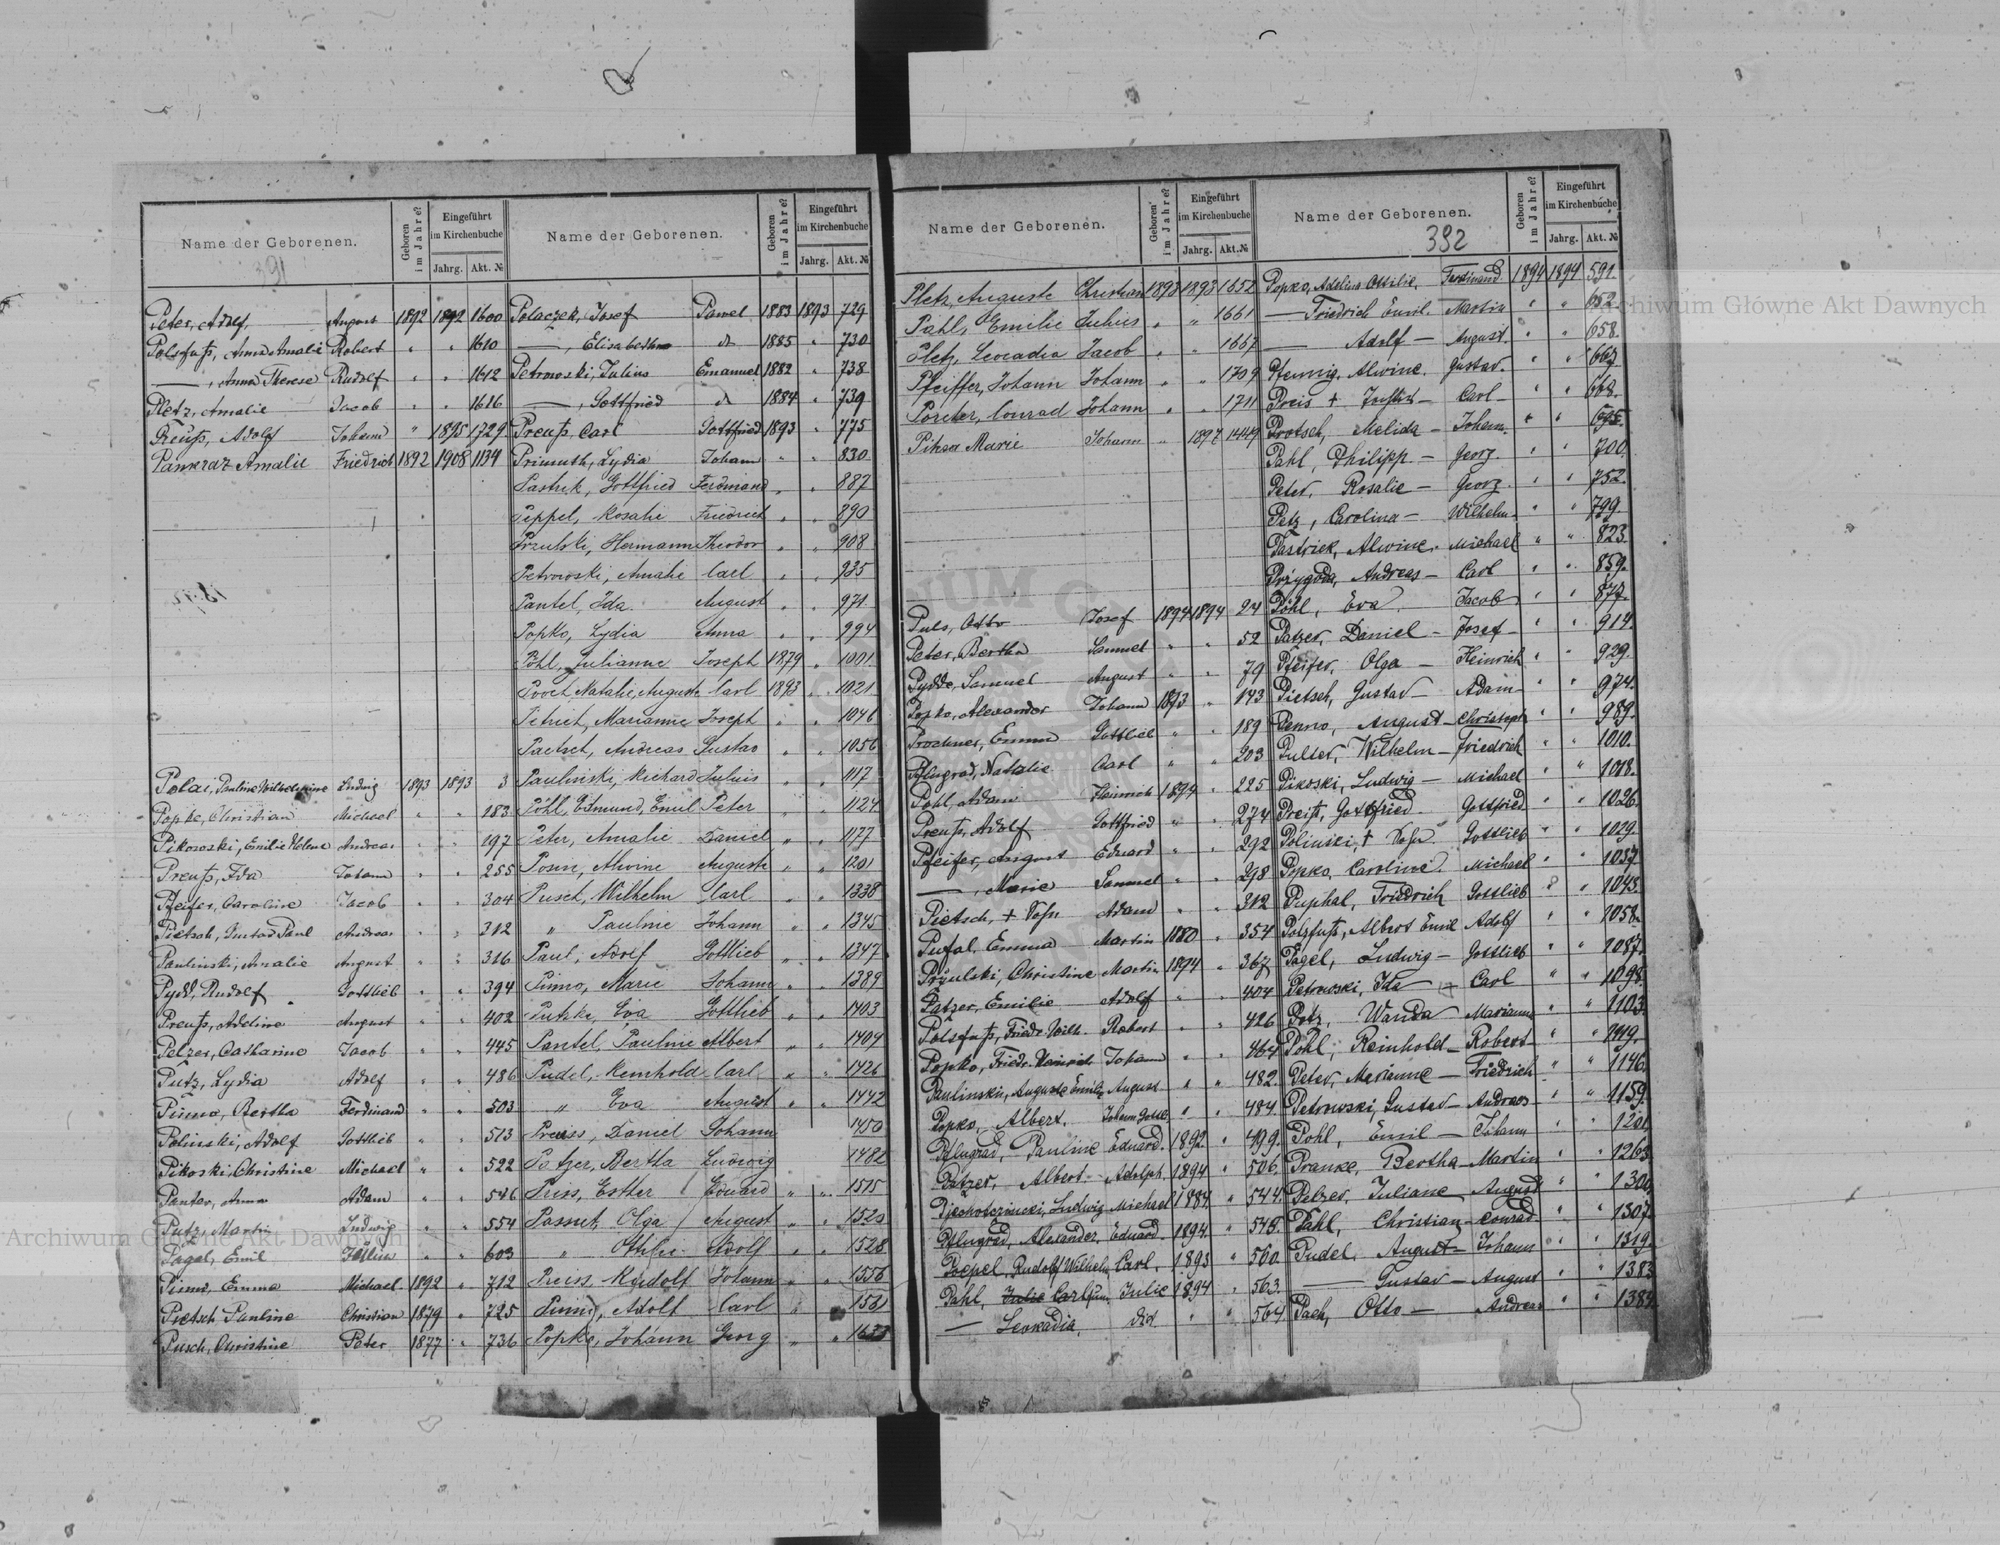 Name der Geborenen.
391
Geboren im Jahre?
Eingeführt im Kirchenbuche
Jahrg. Akt. №
Peter, Adolf, August 1892 1892 1600
Polsfuß, Anna Amalie Robert " " 1610
—, Anna Therese Rudolf " " 1612
Pletz, Amalie Jacob " " 1616
Reuß, Adolf Johann " 1895 1729
Pankraz Amalie Friedrich 1892 1908 1134
Polai, Pauline Wilhelmine Ludwig 1893 1893 3
Popke, Christian Michael " " 183
Pikowski, Emilie Helene Andreas " " 197
Preuß, Ida Johann " " 255
Pfeifer, Caroline Jacob " " 304
Pietsch, Gustav Paul Andreas " " 312
Paulinski, Amalie August " " 316
Pydd, Rudolf Gottlieb " " 394
Preuß, Adeline August " " 402
Pelzer, Catharine Jacob " " 445
Putz, Lydia Adolf " " 486
Pinno, Bertha Ferdinand " " 503
Polinski, Adolf Gottlieb " " 513
Pikoski, Christine Michael " " 522
Panter, Anna Adam " " 546
Putz, Martin Ludwig " " 554
Pagel, Emil Julius " " 603
Pinno, Emma Michael 1892 " 712
Pietsch Pauline Christian 1879 " 725
Pusch, Christine Peter 1877 " 736
Name der Geborenen.
Geboren im Jahre?
Eingeführt im Kirchenbuche
Jahrg. Akt. №
Polaczek, Josef Pawel 1883 1893 729
—, Elisabeth 1885 " 730
Petrowski, Julius Emanuel 1882 " 738
—, Gottfried 1884 " 739
Preuß, Carl Gottfried 1893 " 775
Primuth, Lydia Johann " " 830
Pastrik, Gottfried Ferdinand " " 887
Peppel, Rosalie Friedrich " " 890
Przulski, Hermann Theodor " " 908
Petrowski, Amalie Carl " " 935
Pantel, Ida August " " 971
Popko, Lydia Anna " " 994
Pöhl, Julianne Joseph 1879 " 1001
Poock, Natalie, Auguste Carl 1893 " 1021
Petrich, Marianne Joseph " " 1046
Paetsch, Andreas Gustav " " 1056
Paulinski, Richard Julius " " 1117
Pöhl, Edmund, Emil Peter " " 1124
Peter, Amalie Daniel " " 1177
Posin, Alwine Auguste " " 1201
Pusch, Wilhelm Carl " " 1338
" Pauline Johann " " 1345
Paul, Adolf Gottlieb " " 1347
Pinno, Marie Johann " " 1389
Putzke, Eva Gottlieb " " 1403
Pantel, Pauline Albert " " 1404
Pudel, Reinhold Carl " " 1426
" Eva August " " 1442
Preiss, Daniel Johann 1450
Patzer, Bertha Ludwig 1482
Priss, Esther Eduard " " 1515
Passuth, Olga August " " 1520
" Ottilie Adolf " " 1528
Preiss, Rudolf Johann " " 1556
Pinno, Adolf Carl " " 1561
Popke, Johann Georg " " 1633
Name der Geborenen.
Geboren im Jahre?
Eingeführt im Kirchenbuche
Jahrg. Akt. №
Pletz, Auguste Christian 1893 1893 1652
Pahl, Emilie Julius " " 1661
Pletz, Leocadia Jacob " " 1667
Pfeiffer, Johann Johann " " 1709
Porcher, Conrad Johann " " 1711
Pikser Marie Johann " 1897 1449
Puls, Otto Josef 1894 1894 24
Peter, Bertha Samuel " " 52
Pydde, Samuel August " " 79
Popko, Alexander Johann 1893 " 143
Prochner, Emma Gottlieb " " 189
Pflugrad, Natalie Carl " " 203
Pohl, Adam Heinrich 1894 " 225
Preuß, Adolf Gottfried " " 274
Pfeifer, August Eduard " " 292
—, Marie Samuel " " 298
Pietsch, + Sohn Adam " " 312
Pufal, Emma Martin 1880 " 354
Przulski, Christine Martin 1894 " 367
Patzer, Emilie Adolf " " 404
Polsfuß, Friedr. Wilh. Robert " " 426
Popko, Friedr. Heinrich Johann " " 464
Paulinski, Auguste Emilie August " " 482.
Popko, Albert. Johann Gottl. " " 484
Pflugrad, Pauline Eduard. 1892. " 499.
Patzer, Albert Adolph. 1894 " 506.
Piechoczinski, Ludwig Michael 1884. " 544.
Pflugrad, Alexander, Eduard. 1894. " 545.
Poepel, Rudolf Wilhelm Carl. 1893 " 560.
Pahl, Julie 1894 " 563.
— Leokadia. " " 564
Name der Geborenen.
392
Geboren im Jahre?
Eingeführt im Kirchenbuche
Jahrg. Akt. №
Popko, Adelina Ottilie. Ferdinand. 1894 1894 591.
— Friedrich Emil. Martin " " 652.
— Adolf — August. " " 658.
Pfennig, Alwine. Gustav. " " 667.
Preis + Carl — " " 668.
Protsch, Melida — Johann. " " 695.
Pahl, Philipp — Georg. " " 700.
Peter, Rosalie — Georg. " " 752.
Petz, Carolina — Wilhelm. " " 799.
Pastriek, Alwine. Michael " " 823.
Przygoda, Andreas — Carl " " 859.
Pöhl, Eva. Jacob " " 877.
Patzer, Daniel — Josef — " " 914.
Pfeifer, Olga — Heinrich " " 929.
Pietsch, Gustav — Adam " " 974.
Penno, August — Christoph " " 989.
Puller, Wilhelm — Friedrich " " 1010.
Pikoski, Ludwig — Michael " " 1018.
Preiß, Gottfried. Gottfried " " 1026.
Polinski, + Sohn. Gottlieb " " 1029.
Popko, Caroline. Michael " " 1037.
Puphal, Friedrich Gottlieb " " 1043.
Polzfuß, Albert Emil Adolf " " 1058.
Pagel, Ludwig — Gottlieb " " 1087.
Petrowski, Ida — Carl " " 1098.
Potz, Wanda Marianna " " 1103.
Pohl, Reinhold — Robert — " " 1119.
Peter, Marianne — Friedrich " " 1146.
Petrowski, Gustav — Andreas " " 1159.
Pohl, Emil — Johann " " 1201.
Pranke, Bertha — Martin " " 1263.
Pelzer, Juliane August " " 1300.
Pahl, Christian — Conrad. " " 1307.
Pudel, August — Johann " " 1319.
— Gustav — August " " 1383.
Pach, Otto — Andreas " " 1384.
Archiwum Główne Akt Dawnych
Archiwum Główne Akt Dawnych